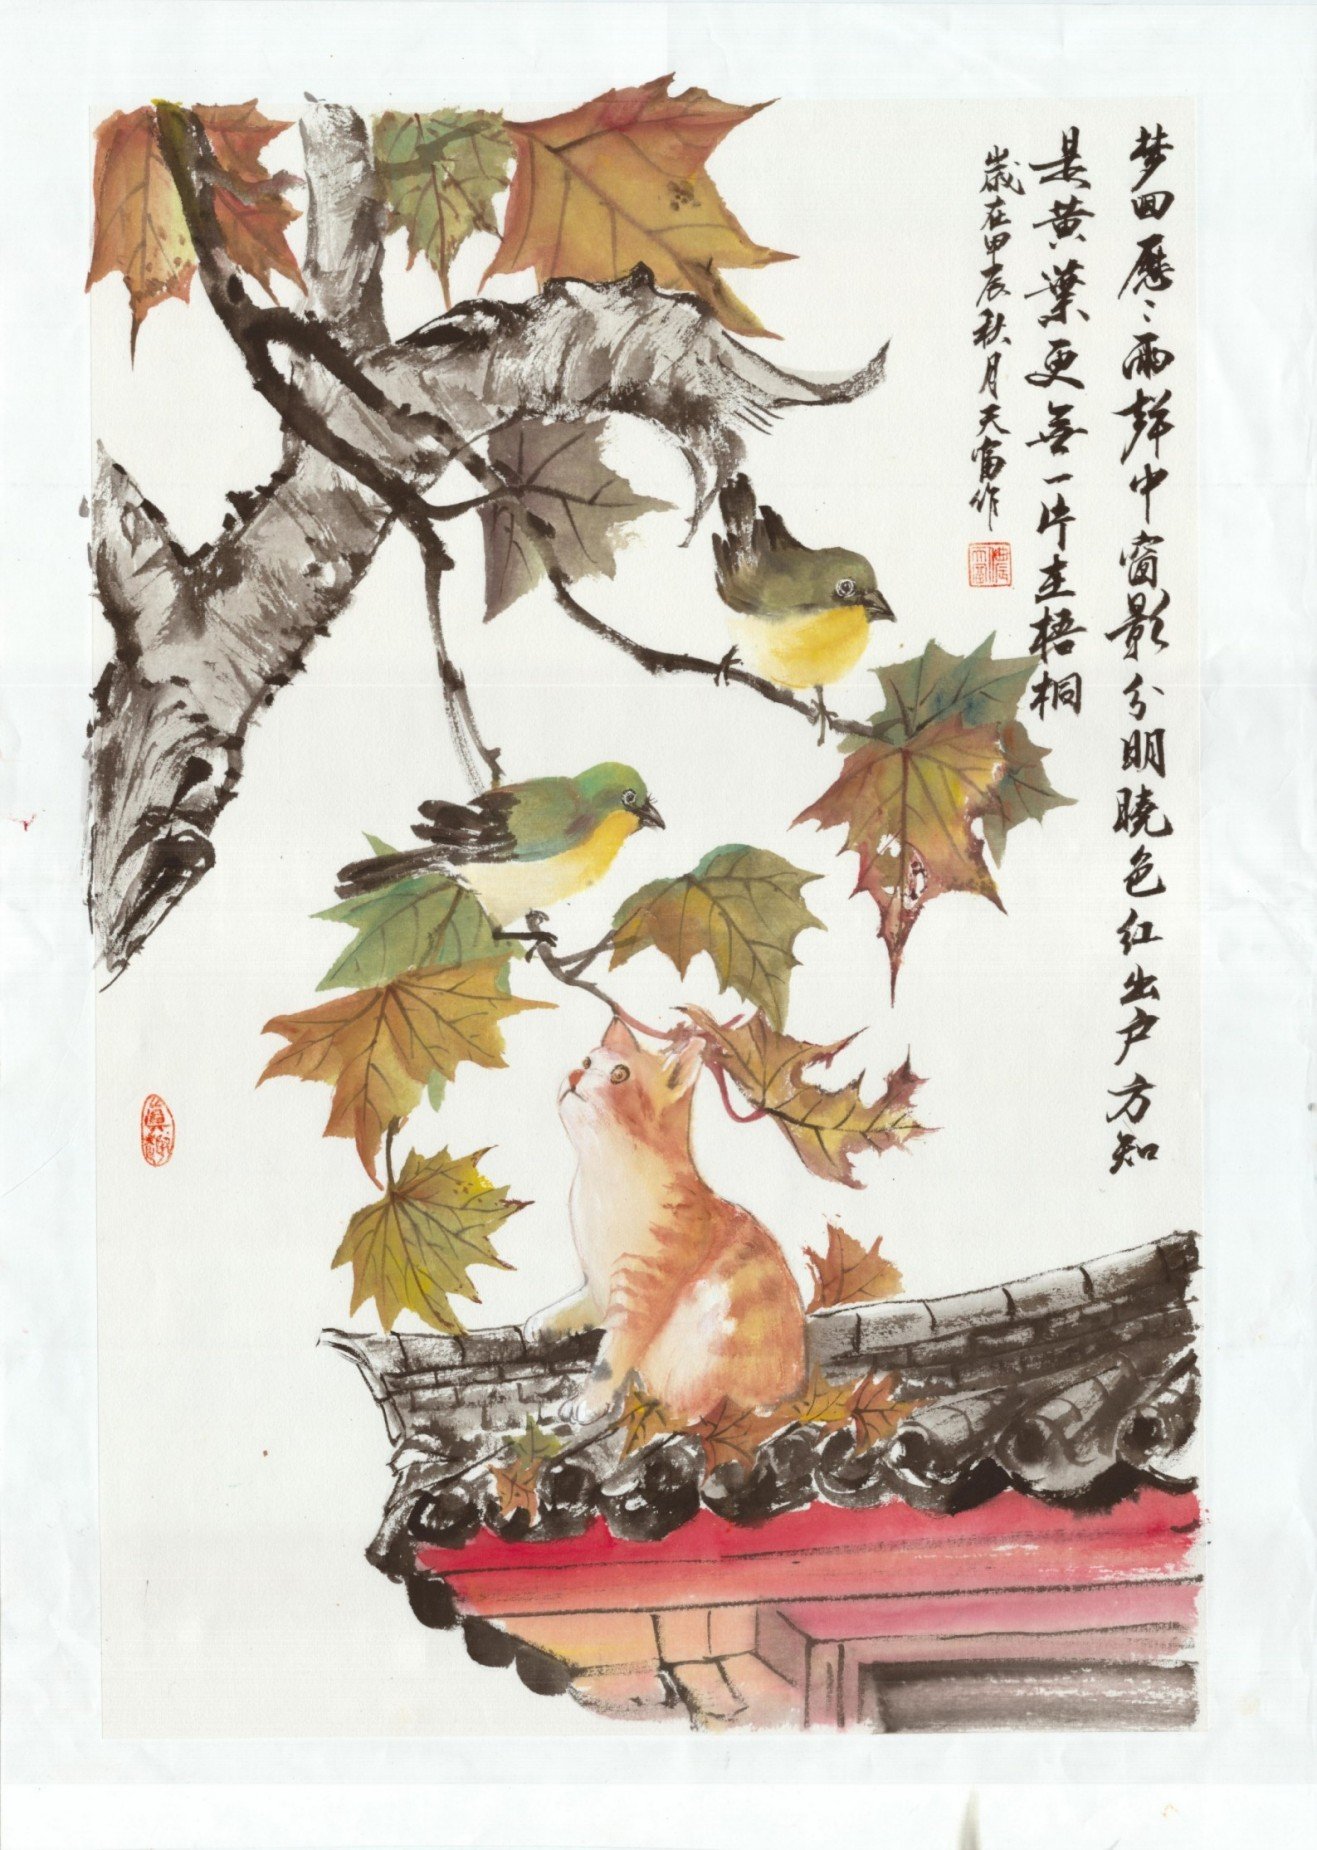 梦回历〻雨声中窗影分明晓色红出户方知
是黄葉更無一片在梧桐
歲在甲辰秋月天富作